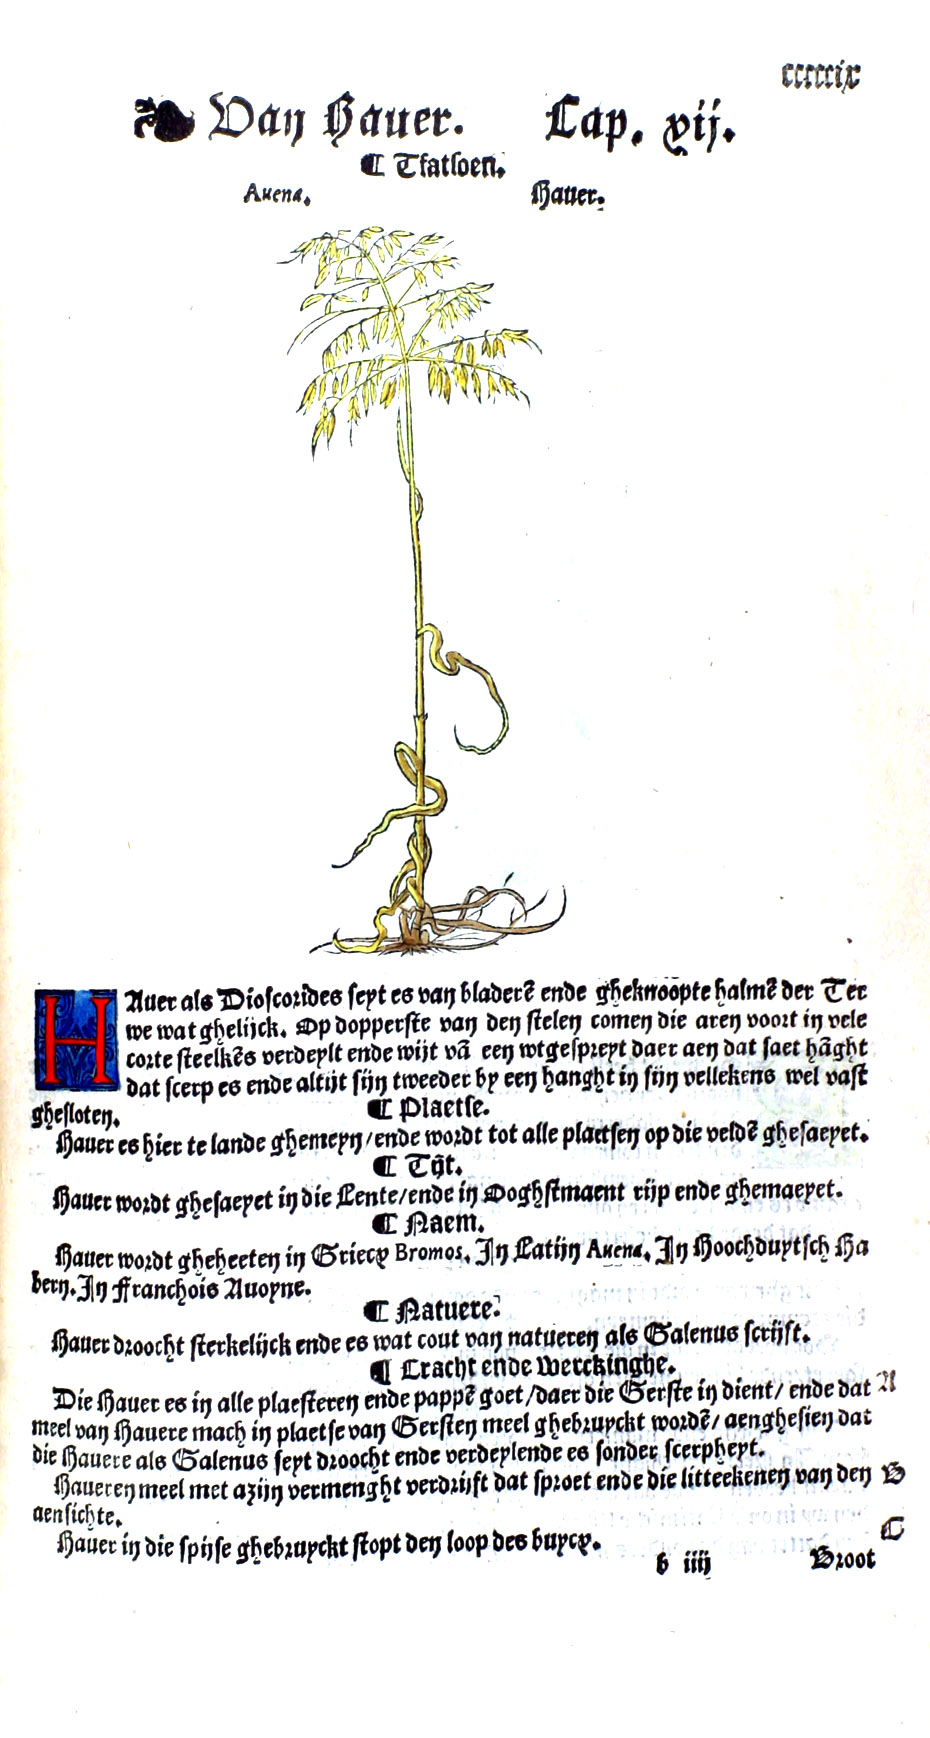 cccccix
Van Hauer. Cap. xij.
¶ Tfatsoen.
Auena. Hauer.
HAuer als Dioscorides seyt es van bladerē ende gheknoopte halmē der Ter
we wat ghelijck. Op dopperste van den stelen comen die aren voort in vele
corte steelkēs verdeylt ende wijt vā een wtgespreyt daer aen dat saet hāght
dat scerp es ende altijt sijn tweeder by een hanght in sijn vellekens wel vast
ghesloten.
¶ Plaetse.
Hauer es hier te lande ghemeyn/ende wordt tot alle plaetsen op die veldē ghesaeyet.
¶ Tijt.
Hauer wordt ghesaeyet in die Lente/ende in Ooghstmaent rijp ende ghemaeyet.
¶ Naem.
Hauer wordt gheheeten in Griecx Bromos. In Latijn Auena. In Hoochduytsch Ha
bern. In Franchois Auoyne.
¶ Natuere.
Hauer droocht sterkelijck ende es wat cout van natueren als Galenus scrijft.
¶ Cracht ende Werckinghe.
Die Hauer es in alle plaesteren ende pappē goet/daer die Gerste in dient/ ende dat A
meel van Hauere mach in plaetse van Gersten meel ghebruyckt wordē/ aenghesien dat
die Hauere als Galenus seyt droocht ende verdeylende es sonder scerpheyt.
Haueren meel met azijn vermenght verdrijft dat sproet ende die litteekenen van den B
aensichte.
Hauer in die spijse ghebruyckt stopt den loop des buycx. C
b iiij Broot